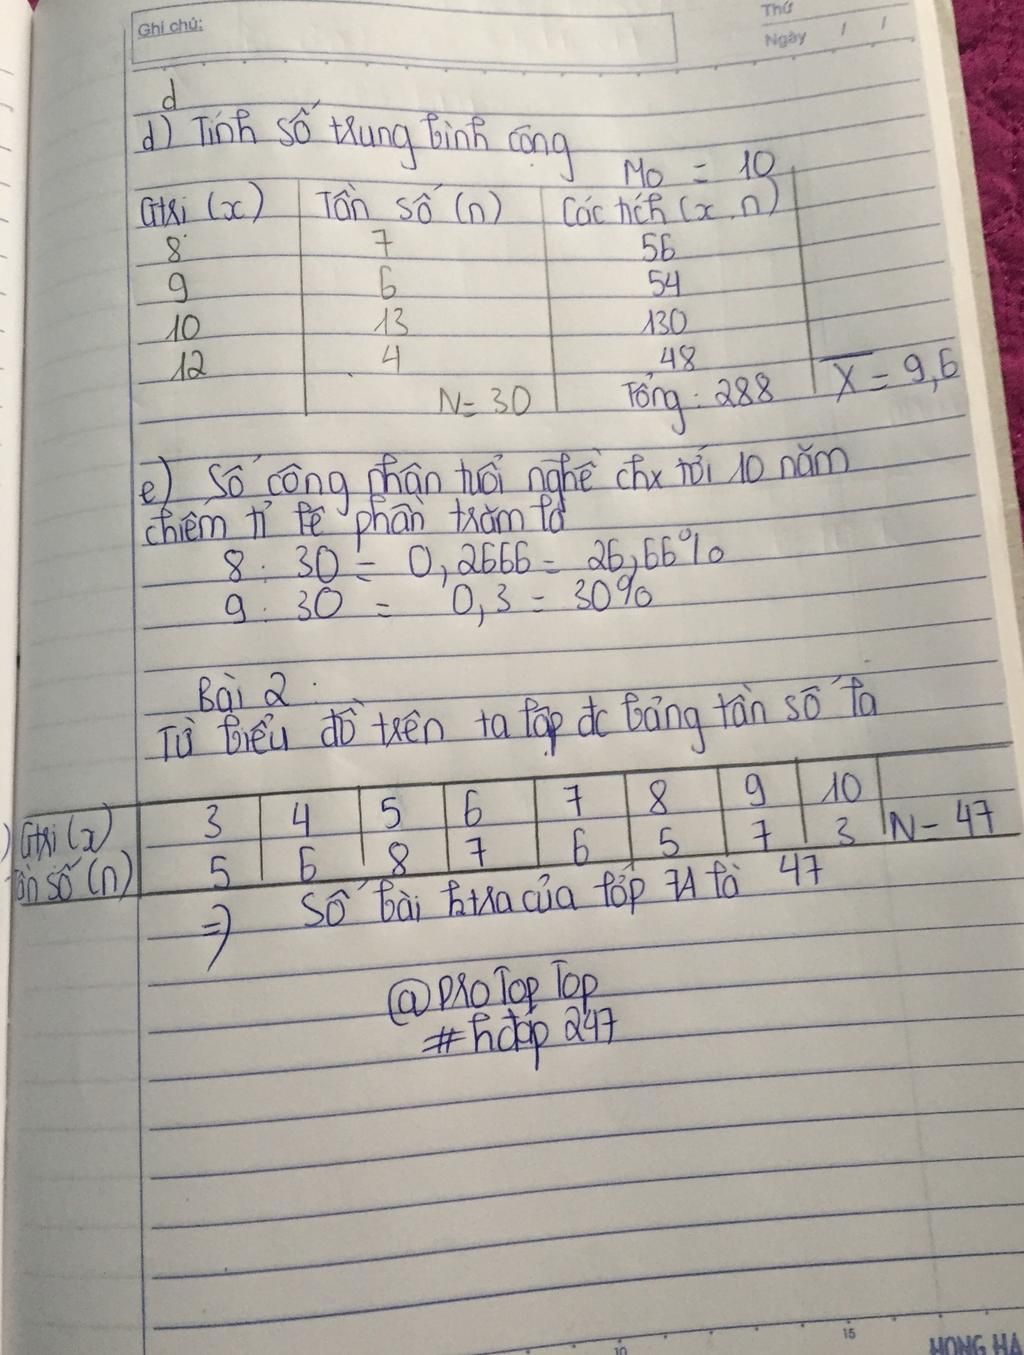 Ghi chú:
Thứ
Ngày / /
d
d) Tính số trung bình cộng
Mo = 10
Gtri (x) Tần số (n) Các tích (x.n)
8 7 56
9 6 54
10 13 130
12 4 48
N= 30 Tổng: 288 X̅ = 9,6
e) Số công nhân tuổi nghề chx tới 10 năm
chiếm tỉ lệ phần trăm là
8 : 30 = 0,2666 = 26,66%
9 : 30 = 0,3 = 30%
Bài 2:
Từ biểu đồ trên ta lập đc bảng tần số là
) Gtri (x) 3 4 5 6 7 8 9 10
Tần số (n) 5 6 8 7 6 5 7 3 N = 47
=> Số bài ktra của lớp 7A là 47
@ProTopTop
#hđáp 247
10
15
HONG HA